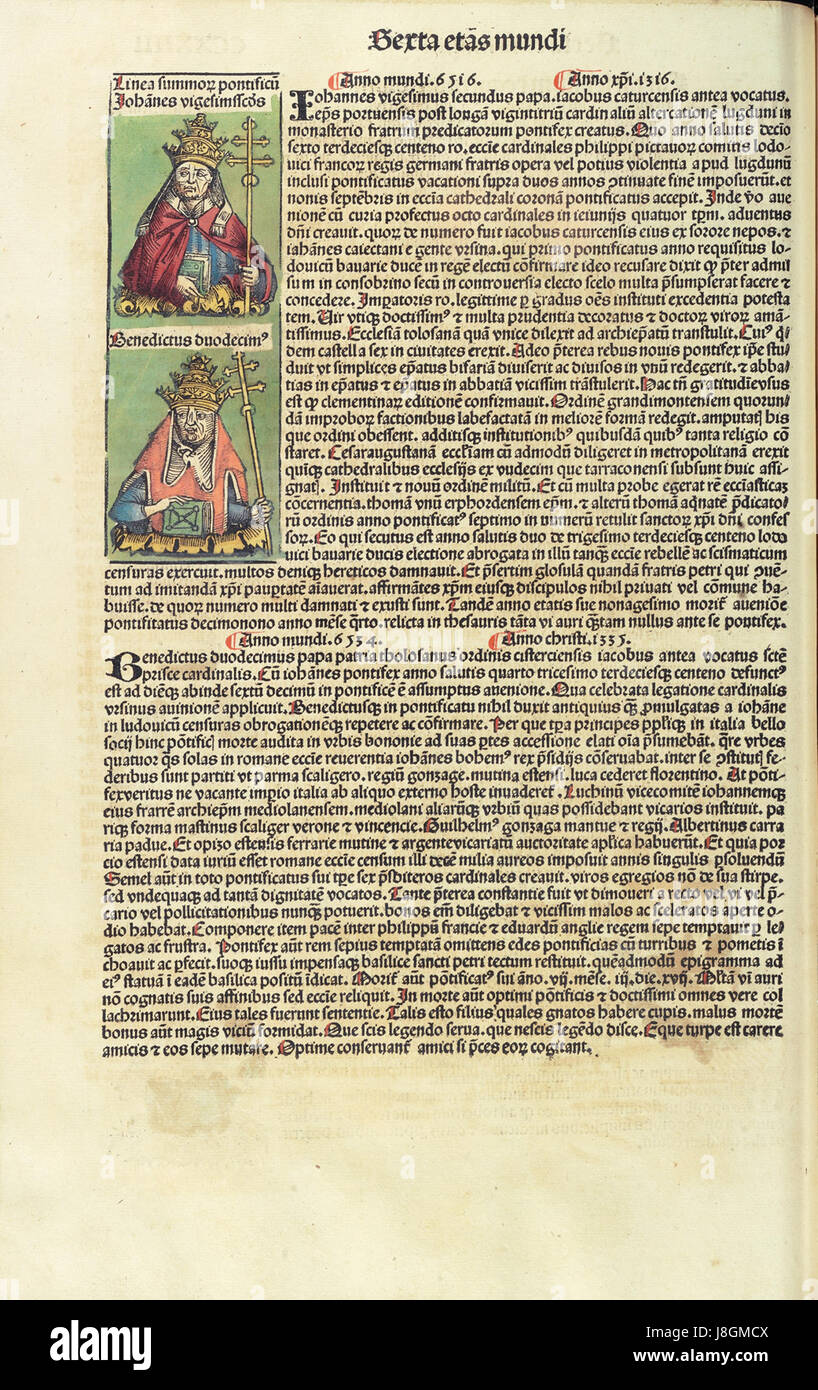 Sexta etas mundi
Linea summoꝝ pontificū
Johānes vigesimsscds
Benedictus duodecim⁹
Anno mundi.6516. Anno xp̄i.1316.
Johannes vigesimus secundus papa.iacobus caturcensis antea vocatus.
ep̄s portuensis post longā vigintitriū cardinaliū altercationē lugduni in
monasterio fratrum predicatorum pontifex creatus. Quo anno salutis decīo
sexto terdeciesqꝫ centeno ro. eccīe cardinales philippi pictauoꝝ comitis lodo-
uici francoꝝ regis germani fratris opera vel potius violentia apud lugdunū
inclusi pontificatus vacationi supra duos annos ꝯtinuate finē imposuerūt. et
nonis septēbris in eccīa cathedrali coronā pontificatus accepit. Inde v̄o aue
nionē cū curia profectus octo cardinales in ieiunijs quatuor tp̄m. aduentus
dn̄i creauit. quoꝝ de numero fuit iacobus caturcensis eius ex sorore nepos. ⁊
iahānes caiectani e gente vrsina. qui primo pontificatus anno requisitus lo-
douicū bauarie ducē in regē electū cōfirmare ideo recusare dixit qꝫ p̄ter admil
sum in consobrino secū in controuersia electo scelo multa p̄sumpserat facere ⁊
concedere. Imp̄atoris ro. legittime ꝑ gradus oēs instituti excedentia potesta
tem. Vir vtiqꝫ doctissim⁹ ⁊ multa prudentia decoratus ⁊ doctoꝝ viroꝝ amā-
tissimus. Ecclesiā tolosanā quā vnice dilexit ad archiep̄atū transtulit. Eui⁹ q̄i
dem castella sex in ciuitates erexit. Adeo p̄terea rebus nouis pontifex ip̄e stu/
duit vt simplices ep̄atus bifariā diuiserit ac diuisos in vnū redegerit. ⁊ abba/
tias in ep̄atus ⁊ ep̄atus in abbatiā vicissim trāstulerit. Hac tn̄ gratitudīe vsus
est qꝫ clementinaꝝ editionē confirmauit. Ordinē grandimonteniem quorun/
dam improboꝝ factionibus labefactatā in meliorē formā redegit. amputatꝭ his
que ordini obessent. additisqꝫ institutionib⁹ quibusdā quib⁹ tanta religio cō
staret. Cesaraugustanā ecckiam cū admodū diligeret in metropolitanā erexit
quīqꝫ cathedralibus ecclesijs ex vudecim que tarraconensi subsunt huic assi/
gnatꝭ. Instituit ⁊ nouū ordinē militū. Et cū multa probe egerat rē ecciasticā
cōcernentia. thomā vnū erphordensem ep̄m. ⁊ alterū thomā adnatē p̄dicato/
rū ordinis anno pontificat⁹ septimo in numerū retulit sanctorꝝ xp̄i dn̄i confes
soꝝ. Eo qui secutus est anno salutis duo de trigesimo terdeciesqꝫ centeno lodo
uici bauarie ducis electione abrogata in illū tanqꝫ eccīe rebellē ac scismaticum
censuras exercuit. multos deniqꝫ hereticos damnauit. Et p̄sertim glosulā quandā fratris petri qui ꝯuē-
tum ad imitandā xp̄i paup̄tatē aīauerat. affirmātes xp̄m eiusqꝫ discipulos nihil priuati vel cōmune ha-
buisse. de quoꝝ numero multi damnati ⁊ exusti sunt. Tandē anno etatis sue nonagesimo morit᷑ auenione
pontifitatus decimonono anno mēse q̄rto. relicta in thesauris tāta vi auri qꝫtam nullus ante se pontifex.
Anno mundi.6534. Anno christi.1335.
Benedictus duodecimus papa patria tholosanus ordinis cisterciensis iacobus antea vocatus sctē
prisce cardinalis. Cū iohānes pontifex anno salutis quarto tricesimo terdeciesqꝫ centeno defunct⁹
est ad diēqꝫ abinde sextū decimū in pontificē ē assumptus auenione. Qua celebrata legatione cardinalis
vrsinus auinionē applicuit. Benedictusqꝫ in pontificatu nihil duxit antiquius qꝫ promulgatas a iohāne
in ludouicū censuras obrogationēqꝫ repetere ac cōfirmare. Per que tp̄a principes pp̄liqꝫ in italia bello
socij hinc pōtificꝭ morte audita in vrbis bononie ad suas p̄tes accessione elati oīa p̄sumebāt. q̄re vrbes
quatuor q̄s solas in romane eccīe reuerentia iohānes bohem⁹ rex p̄sidijs cōseruabat. inter se ꝯstitutꝭ fe-
deribus sunt partiti vt parma scaligero. regiū gonzage. mutina estensi. luca cederet florentino. At pōti-
fex veritus ne vacante imp̄io italia ab aliquo externo hoste inuaderet᷑. Luchinū vicecomitē iohannemqꝫ
eius frarrē archiep̄m mediolanensem. mediolani aliarūqꝫ vrbiū quas possidebant vicarios instituit. pa
riqꝫ forma mastinus scaliger verone ⁊ vincencie. Guilhelm⁹ gonzaga mantue ⁊ regij. Albertinus carra
ria padue. Et opizo estensis ferrarie mutine ⁊ argente vicariatū auctoritate ap̄lica habuerūt. Et quia por
cio estensi data iuriū esset romane eccīe censum illi decē milia aureos imposuit annis singulis ꝑsoluendū
Semel aūt in toto pontificatus sui tp̄e sex p̄sbiteros cardinales creauit. viros egregios nō de sua stirpe.
sed vndequaqꝫ ad tantā dignitatē vocatos. Tante p̄terea constantie fuit vt dimoueri a recto vel vi vel p̄-
cario vel pollicitationibus nunqꝫ potuerit. bonos em̄ diligebat ⁊ vicissim malos ac sceleratos aperte o-
dio habebat. Componere item pacē inter philippū francie ⁊ eduardū anglie regem sepe temptauit ꝑ le
gatos ac frustra. Pontifex aūt rem sepius temptatā omittens edes pontificias cū turribus ⁊ pometis ī
choauit ac ꝑfecit. suoqꝫ iussu impensaqꝫ basilice sancti petri tectum restituit. queādmodū epigramma ad
ei⁹ statuā ī eadē basilica positū īdicat. Morit᷑ aūt pōtificat⁹ sui āno. vij. mēse. iij. die. xvij. Mltā vī auri
nō cognatis suis affinibus sed eccīe reliquit. In morte aūt optimi pōtificis ⁊ doctissimi omnes vere col
lachrimarunt. Eius tales fuerunt sententie. Talis esto filius quales gnatos habere cupis. malus mortē
bonus aūt magis viciū formidat. Que scis legendo serua. que nescis legēdo disce. Eque turpe est carere
amicis ⁊ eos sepe mutare. Optime conseruant᷑ amici si p̄ces eoꝝ cogitant.
a alamy
Image ID: J8GMCX
www.alamy.com